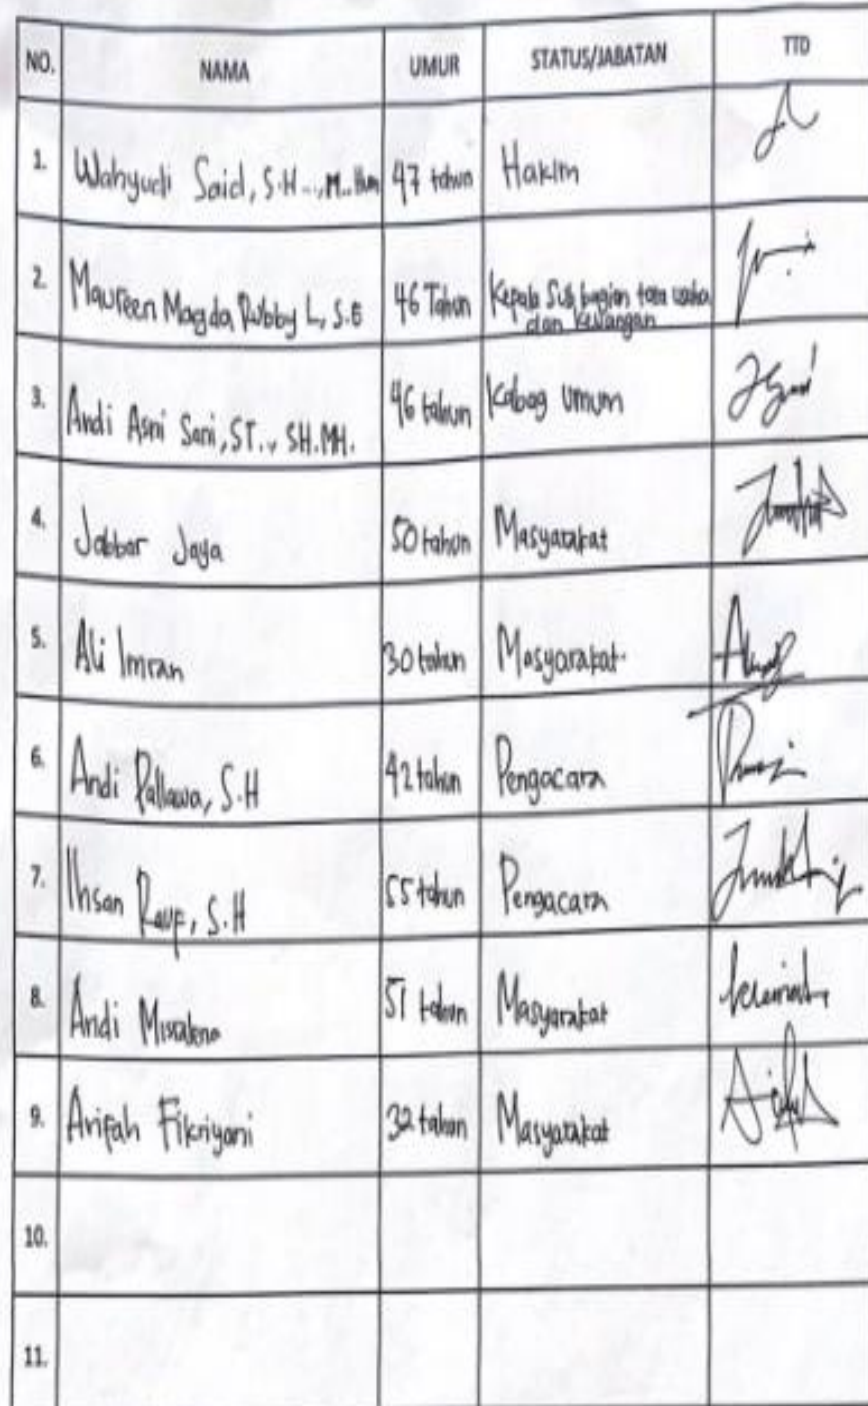 NO. NAMA UMUR STATUS/JABATAN TTD
1. Wahyudi Said, S.H.., M..Hum 47 tahun Hakim
2. Maureen Magda Rubby L, S.E 46 Tahun Kepala Sub bagian tata usaha
dan keuangan
3. Andi Asni Sani, ST., SH.MH. 46 tahun Kabag Umum
4. Jabbar Jaya 50 tahun Masyarakat
5. Ali Imran 30 tahun Masyarakat
6. Andi Pallawa, S.H 42 tahun Pengacara
7. Ihsan Rauf, S.H 55 tahun Pengacara
8. Andi 51 tahun Masyarakat
9. Arifah Fikriyani 32 tahun Masyarakat
10.
11.